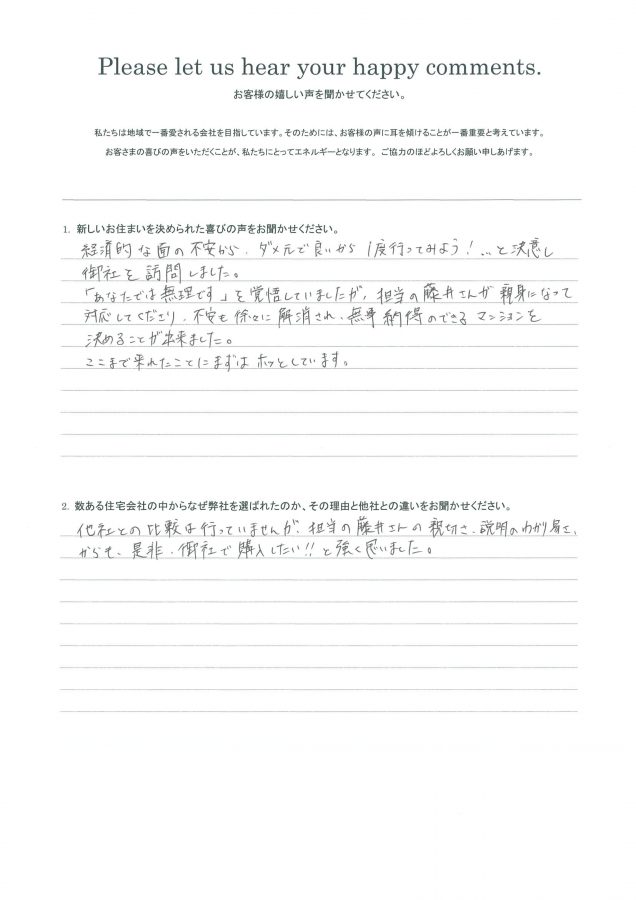 Please let us hear your happy comments.
お客様の嬉しい声を聞かせてください。
私たちは地域で一番愛される会社を目指しています。そのためには、お客様の声に耳を傾けることが一番重要と考えています。
お客さまの喜びの声をいただくことが、私たちにとってエネルギーとなります。 ご協力のほどよろしくお願い申しあげます。
1. 新しいお住まいを決められた喜びの声をお聞かせください。
経済的な面の不安から、ダメ元で良いから1度行ってみよう！…と決意し
御社を訪問しました。
「あなたでは無理です」を覚悟していましたが、担当の藤井さんが親身になって
対応してくださり、不安も徐々に解消され、無事納得のできるマンションを
決めることが出来ました。
ここまで来れたことにまずはホッとしています。
2. 数ある住宅会社の中からなぜ弊社を選ばれたのか、その理由と他社との違いをお聞かせください。
他社との比較は行っていませんが、担当の藤井さんの親切さ、説明のわかり易さ、
からも、是非、御社で購入したい!!と強く思いました。